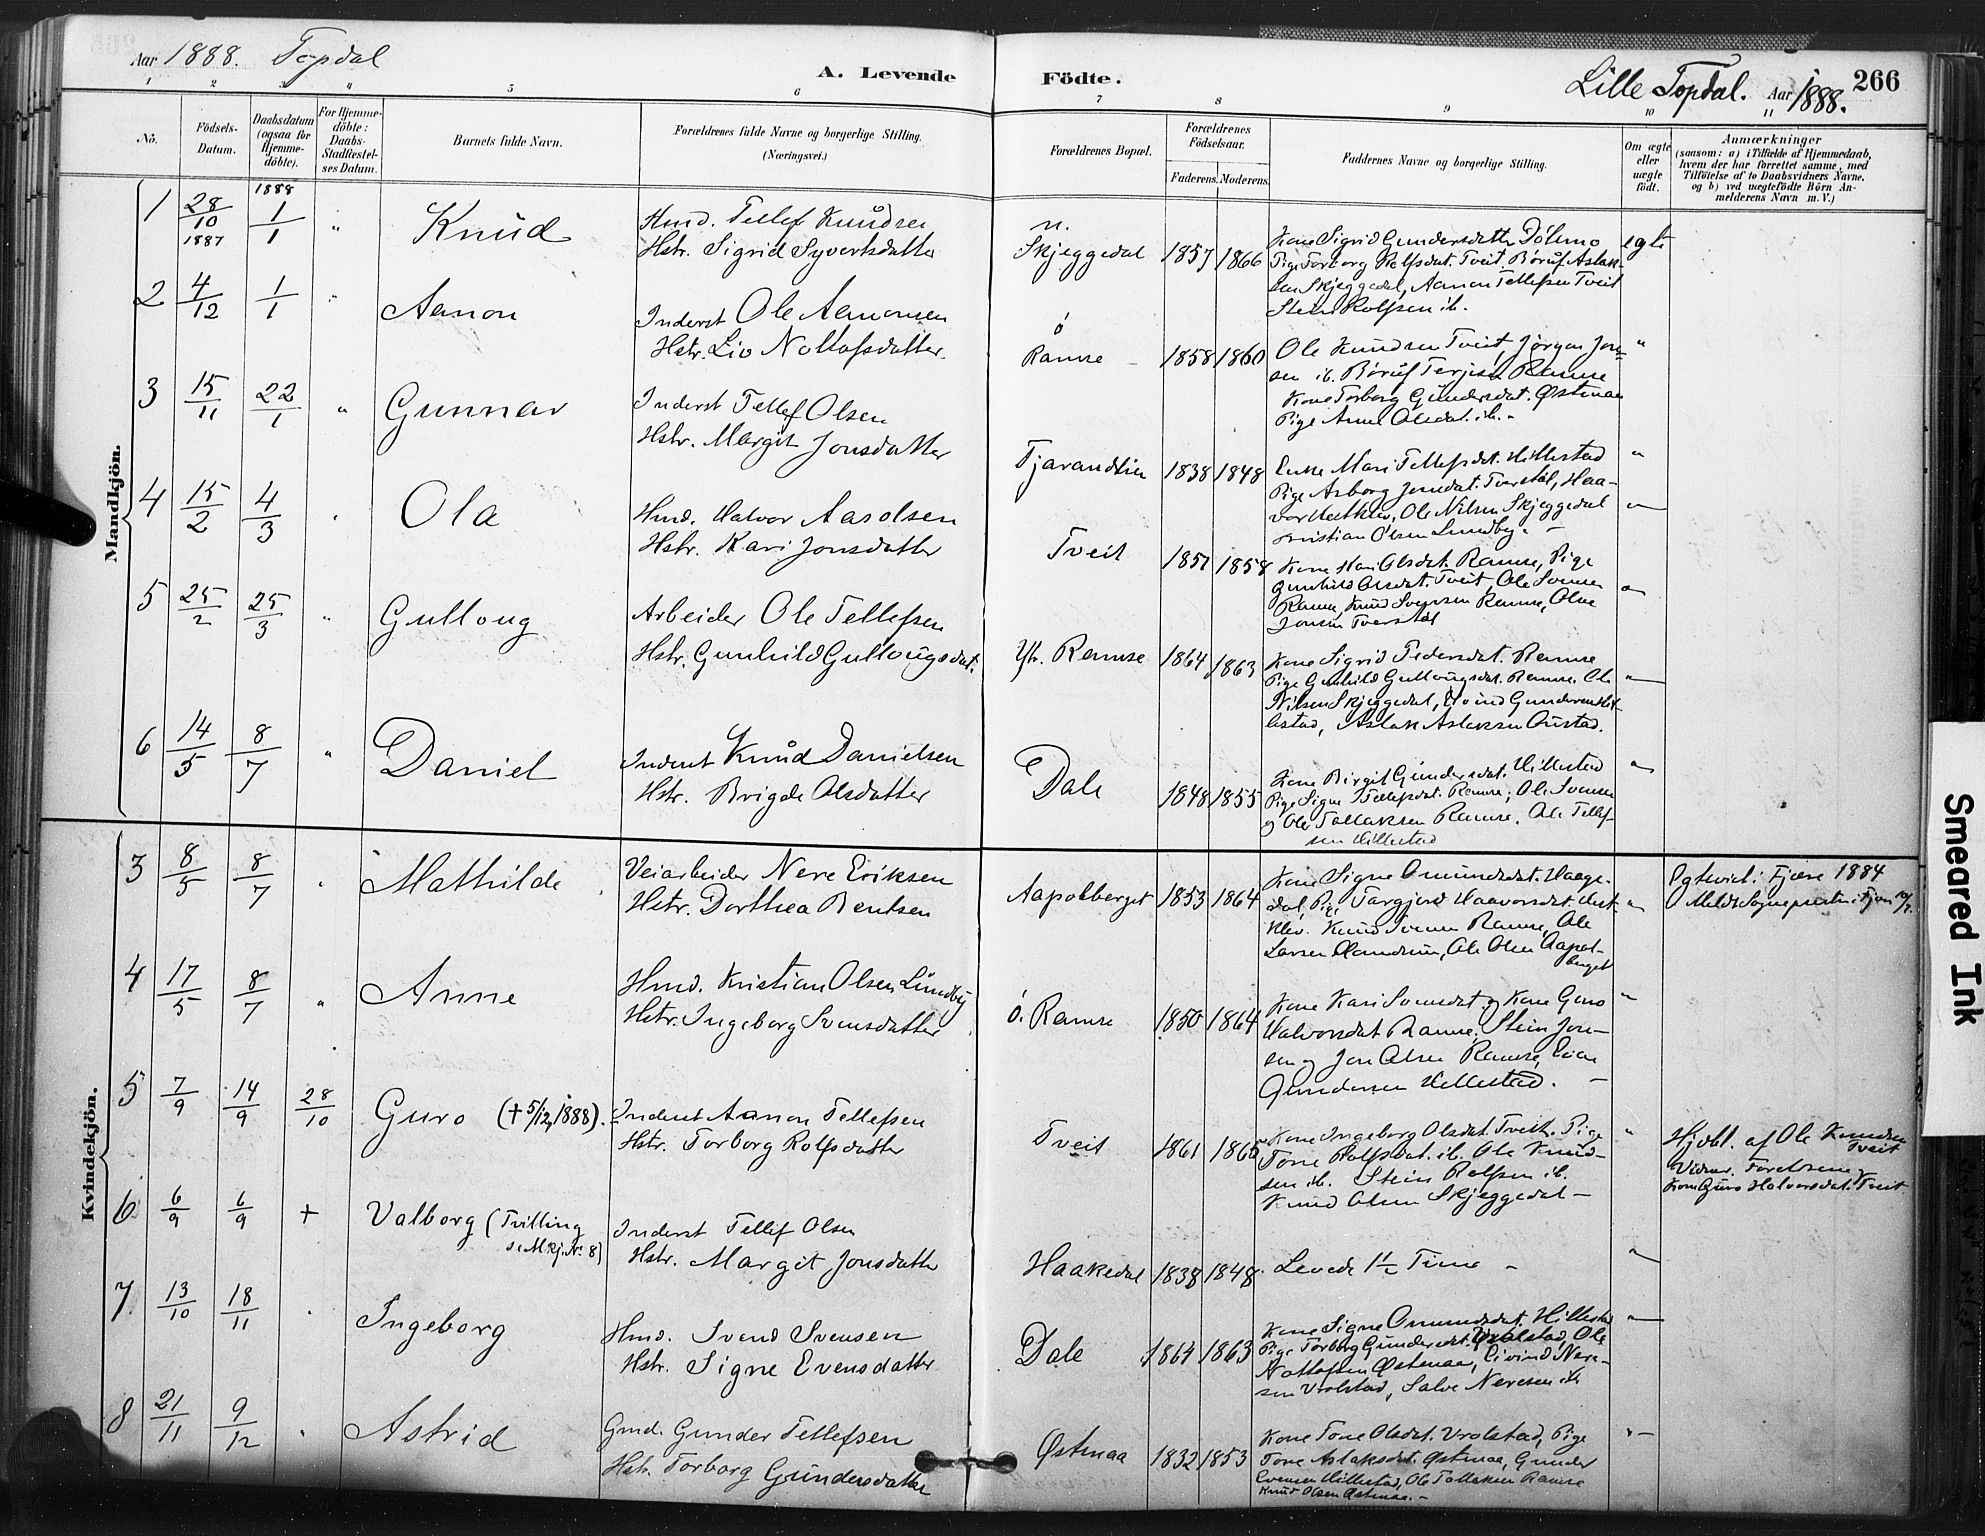 Aar 1888. Topdal
A. Levende Födte.
Lille Topdal. Aar 1888.
266
1 2 3 4 5 6 7 8 9 10 11
No.
Födsels-Datum.
Daabsdatum (ogsaa for Hjemmedöbte).
For Hjemmedöbte: Daabs-Stadfæstelses Datum.
Barnets fulde Navn.
Forældrenes fulde Navne og borgerlige Stilling.
(Næringsvei.)
Forældrenes Bopæl.
Forældrenes Födselsaar.
Faderens. Moderens.
Faddernes Navne og borgerlige Stilling.
Om ægte eller uægte födt.
Anmærkninger
(saasom: a) i Tilfælde af Hjemmedaab,
hvem der har forrettet samme, med
Tilföielse af to Daabsvidners Navne,
og b) ved uægtefödte Börn An-
melderens Navn m. V.)
Mandkjön.
1 28/10 1887 1888 1/1 " Knud
Hmd. Tellef Knudsen
Hstr. Sigrid Syvertsdatter
n. Skjeggedal 1857 1866
Kone Sigrid Gundersdatter Dølemo
Pige Torborg Rolfsdat. Tveit, Børuf Aslak-
sen Skjeggedal, Aanon Tellefsen Tveit
Stein Rolfsen ib.
egte
2 4/12 1/1 " Aanon
Inderst Ole Aanonsen
Hstr. Liv Nottofsdatter.
ö Ramse 1858 1860
Ole Knudsen Tveit, Jørgen Jon-
sen ib. Børuf Terjesen Ramse
Kone Torborg Gundersdat. Østenaa
Pige Anne Olsdat. ib. -
"
3 15/11 22/1 " Gunnar
Inderst Tellef Olsen
Hstr. Margit Jonsdatter
Tjarandslien 1838 1848
Enke Mari Tellefsdat. Hillestad
Pige Asborg Jonsdat. Tverstøl, Haa-
vor Ole Nilsen Skjeggedal
Kristian Olsen Lundby. -
"
4 15/2 4/3 " Ola
Hmd. Halvor Aasolsen
Hstr. Kari Jonsdatter
Tveit 1857 1858
Kone Olsdat. Ramse, Pige
Gunhild Olsdat. Tveit, Ole Svensen
Ramse, Knud Svensen Ramse, Olav
Jonsen Tverstøl
"
5 25/2 25/3 " Gulloug
Arbeider Ole Tellefsen
Hstr. Gunhild Gullougsdat.
Yt. Ramse 1864 1863
Kone Sigrid Pedersdat. Ramse
Pige Gunhild Gullougsdat. Ramse. Ole
Nilsen Skjeggedal, Eivind Gundersen Hil-
lestad, Aslak Aslaksen
"
6 14/5 8/7 " Daniel
Inderst Knud Danielsen
Hstr. Brigde Olsdatter
Dale 1848 1855
Kone Birgit Gundersdat. Hillestad
Pige Signe Tellefsdat. Ramse; Ole Svensen
og Ole Tallaksen Ramse. Ole Tellef-
sen Hillestad
"
Kvindekjön.
3 8/5 8/7 " Mathilde
Veiarbeider Nere Eriksen
Hstr. Dorthea Bentsen
Aapolberget 1853 1864
Kone Signe Omundsdat. Haage-
dal, Pige Targjerd Haavorsdat.
Knud Svensen Ramse, Ole
Larsen Ole Olsen Aapol-
berget
"
Egteviet i Fjære 1884
Meldt Sognepresten i Fjære
4 17/5 8/7 " Anne
Hmd. Kristian Olsen Lundby
Hstr. Ingeborg Svensdatter
ö. Ramse 1850 1864
Kone Kari Svensdat og Kone Guro
Halvorsdat Ramse, Stein Jon-
sen og Jon Olsen Ramse, Even
Gundersen Hillestad. -
"
5 7/9 14/9 28/10 Guro (+5/12 1888).
Inderst Aanon Tellefsen
Hstr. Torborg Rolfsdatter
Tveit 1861 1865
Kone Ingeborg Olsdat. Tveit. Pige
Tone Rolfsdat. ib. Ole Knud-
sen ib. Stein Rolfsen ib.
Knud Olsen Skjeggedal -
"
Hjdbt. af Ole Knudsen
Tveit
Vidner. Forældrene og
Kone Guro Halvorsdat. Tveit
6 6/9 6/9 + Valborg (Tvilling
se Mkj. No 8)
Inderst Tellef Olsen
Hstr. Margit Jonsdatter
Haakedal 1838 1848
Levede 1½ Time -
"
7 13/10 18/11 " Ingeborg
Hmd. Svend Svensen
Hstr. Signe Evensdatter
Dale 1864 1863
Kone Signe Omundsdat. Hillestad
Pige Torborg Gundersdat. Vrolstad, Ole
Nottofsen Østenaa, Eivind Nere-
sen Vrolstad, Salve Neresen ib
"
8 21/11 9/12 " Astrid
Gmd. Gunder Tellefsen
Hstr. Torborg Gundersdatter
Østenaa 1832 1853
Kone Tone Olsdat. Vrolstad, Pige
Tone Aslaksdat. Østenaa, Gunder
Evensen Hillestad, Ole Tallaksen Ramse
Knud Olsen Østenaa. -
"
Smeared Ink